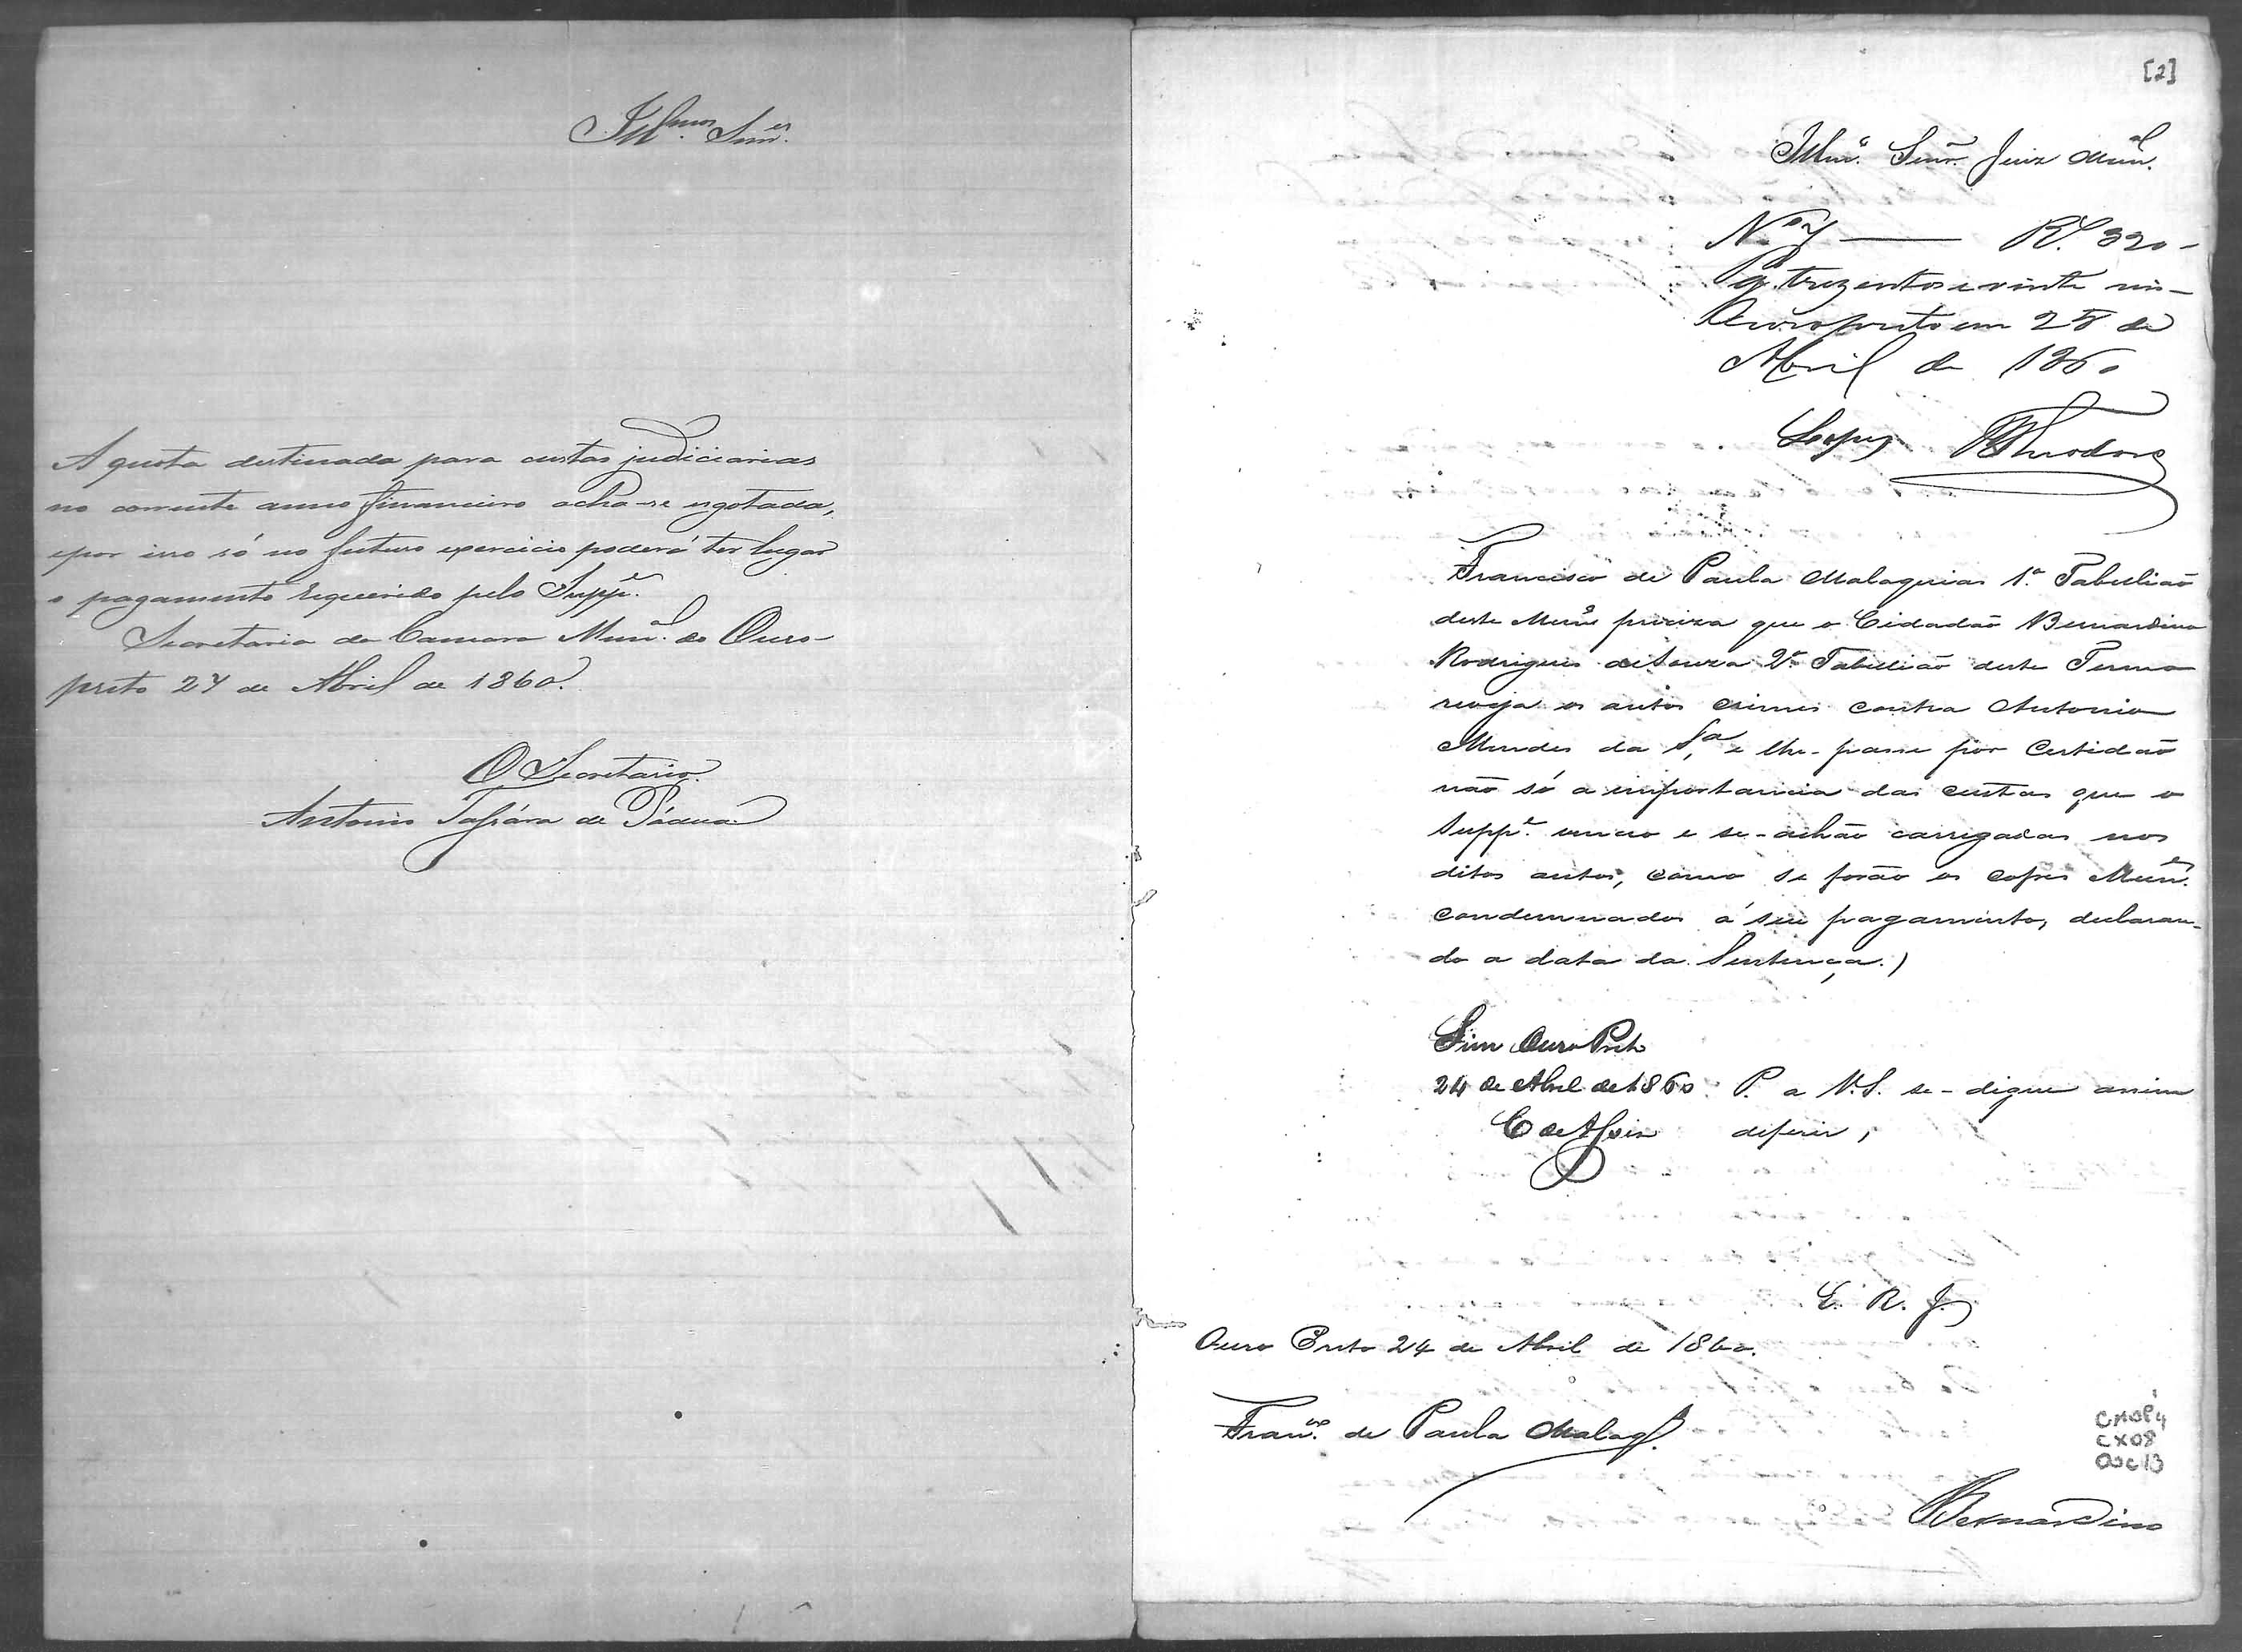 Ill.mos Snr.es
A quota destinada para custas judiciarias
no corrente anno financeiro acha-se esgotada,
e por isso só no futuro exercicio poderá ter lugar
o pagamento requerido pelo Supp.e
Secretaria da Camara Mun.al do Ouro-
preto 27 de Abril de 1860.
O Secretario
Antonio de Pádua
[2]
Illm.o Senr. Juiz Mun.al
N.o 7 — R.s 320-
Pg. trezentos e vinte reis-
Ouro preto em 25 de
Abril de 1860
Lopes Theodoro
Francisco de Paula Malaquias 1.o Tabellião
deste Mun.o preciza que o Cidadão Bernardino
Rodrigues de Souza 2.o Tabellião deste Termo
reveja os autos crimes contra Antonio
Mendes da S.a e lhe-passe por Certidão
não só a importancia das custas que o
Supp.e venceo e se-achão carregadas nos
ditos autos, como se forão os cofres Mun.es
condemnados á seu pagamento, declaran-
do a data da Sentença.)
Sim Ouro Preto
24 de Abril de 1860 P. a V.S. se-digne assim
deferir,
E. R. J.
Ouro Preto 24 de Abril de 1860.
Fran.co de Paula Malaq.s
CMOP4
CX08
DOC13
Bernardino